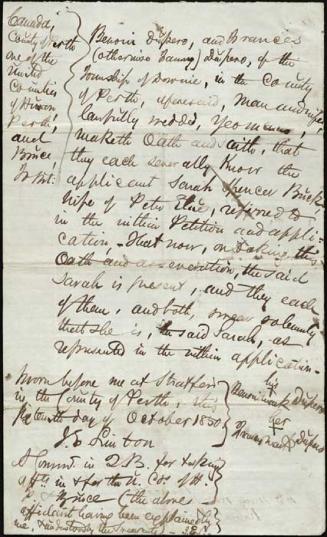 Canada,
County of Perth
one of the
United
Counties
of Huron
Perth,
and
Bruce,
To Wit:
Benoin Dupero, and Frances
(otherwise Fanny) Dupero, of the
Township of Downie, in the County
of Perth, aforesaid, Man and wife,
lawfully wedded, Yeoman,
maketh Oath and saith, that
they each severally Know the
applicant Sarah Spencer
Wife of Peter, referred to
in the within Petition and appli-
cation, - That now, on taking this
Oath and asseveration, the said
Sarah is present, and they each
of them, and both, swear solemnly
that she is, the said Sarah, as
represented in the within application -
Sworn before me at Stratford
in the County of Perth, this
day of October 1850
J. C. Linton
A Commr. in Q.B. for taking
affts in & for the U. Cos of H.
P. & Bruce (the above
affidavit having been explained by
me, & understood by the
his
mark Dupero
her
mark Dupero